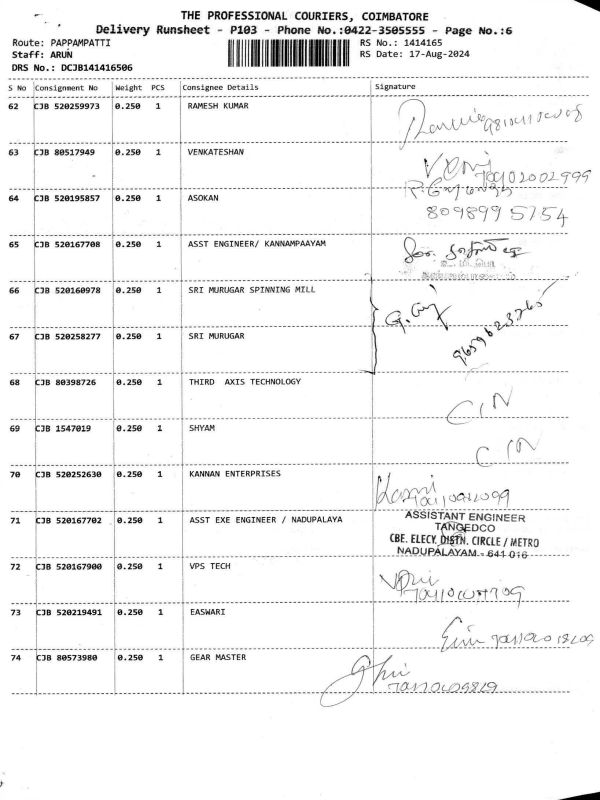 THE PROFESSIONAL COURIERS, COIMBATORE
Delivery Runsheet - P103 - Phone No.:0422-3505555 - Page No.:6
Route: PAPPAMPATTI RS No.: 1414165
Staff: ARUN RS Date: 17-Aug-2024
DRS No.: DCJB141416506
S No Consignment No Weight PCS Consignee Details Signature
62 CJB 520259973 0.250 1 RAMESH KUMAR
63 CJB 80517949 0.250 1 VENKATESHAN
64 CJB 520195857 0.250 1 ASOKAN
809899 5754
65 CJB 520167708 0.250 1 ASST ENGINEER/ KANNAMPAAYAM
66 CJB 520160978 0.250 1 SRI MURUGAR SPINNING MILL
67 CJB 520258277 0.250 1 SRI MURUGAR
68 CJB 80398726 0.250 1 THIRD AXIS TECHNOLOGY C/N
69 CJB 1547019 0.250 1 SHYAM C/N
70 CJB 520252630 0.250 1 KANNAN ENTERPRISES
71 CJB 520167702 0.250 1 ASST EXE ENGINEER / NADUPALAYA
ASSISTANT ENGINEER
TANGEDCO
CBE. ELECY. DISTN. CIRCLE / METRO
NADUPALAYAM - 641 016
72 CJB 520167900 0.250 1 VPS TECH
73 CJB 520219491 0.250 1 EASWARI
74 CJB 80573980 0.250 1 GEAR MASTER